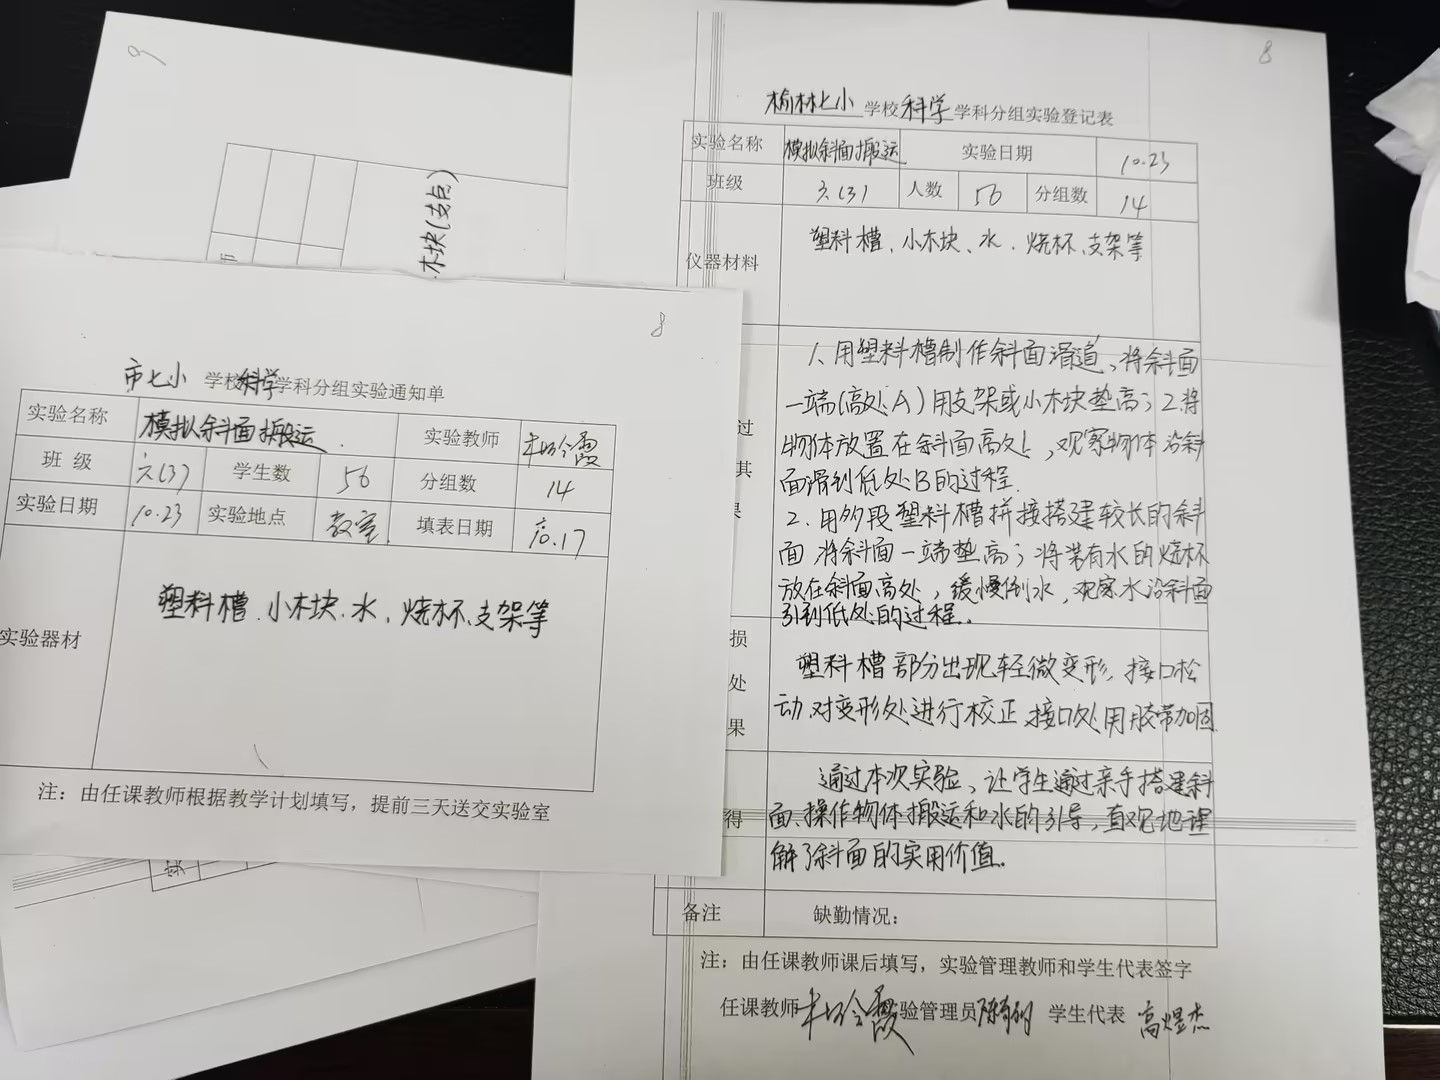 9
木块(支点)
8
市七小 学校科学学科分组实验通知单
实验名称 模拟斜面搬运 实验教师
班 级 六(3) 学生数 56 分组数 14
实验日期 10.23 实验地点 教室 填表日期 .17
实验器材 塑料槽、小木块、水、烧杯、支架等
注：由任课教师根据教学计划填写，提前三天送交实验室
8
榆林七小 学校科学学科分组实验登记表
实验名称 模拟斜面搬运 实验日期 10.23
班级 六(3) 人数 56 分组数 14
仪器材料 塑料槽、小木块、水、烧杯、支架等
过
其
果
1、用塑料槽制作斜面滑道，将斜面
一端(高处A)用支架或小木块垫高；2.将
物体放置在斜面高处，观察物体沿斜
面滑到低处B的过程.
2、用多段塑料槽拼接搭建较长的斜
面，将斜面一端垫高；将装有水的烧杯
放在斜面高处，缓慢倒水，观察水沿斜面
引到低处的过程。
损
处
果
塑料槽部分出现轻微变形，接口松
动，对变形处进行校正，接口处用胶带加固
得
通过本次实验，让学生通过亲手搭建斜
面、操作物体搬运和水的引导，直观地理
解了斜面的实用价值.
备注 缺勤情况：
注：由任课教师课后填写，实验管理教师和学生代表签字
任课教师 验管理员 学生代表 高煜杰